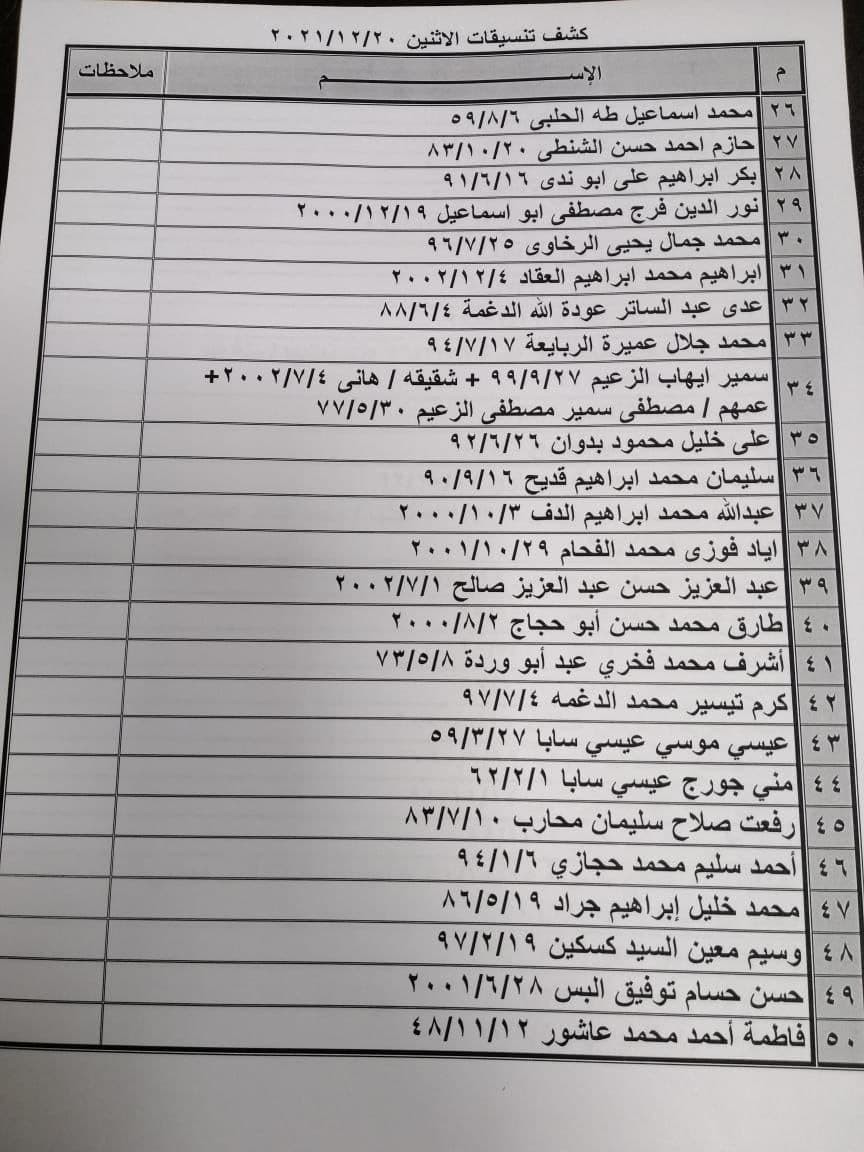 كشف تنسيقات الاثنين ٢٠٢١/١٢/٢٠
م الإســـــــــم ملاحظات
٢٦ محمد اسماعيل طه الحلبى ٥٩/٨/٦
٢٧ حازم احمد حسن الشنطى ٨٣/١٠/٢٠
٢٨ بكر ابراهيم على ابو ندى ٩١/٦/١٦
٢٩ نور الدين فرج مصطفى ابو اسماعيل ٢٠٠٠/١٢/١٩
٣٠ محمد جمال يحيى الرخاوى ٩٦/٧/٢٥
٣١ ابراهيم محمد ابراهيم العقاد ٢٠٠٢/١٢/٤
٣٢ عدى عبد الساتر عودة الله الدغمة ٨٨/٦/٤
٣٣ محمد جلال عميرة الربايعة ٩٤/٧/١٧
٣٤ سمير ايهاب الزعيم ٩٩/٩/٢٧ + شقيقه / هانى ٢٠٠٢/٧/٤+
عمهم / مصطفى سمير مصطفى الزعيم ٧٧/٥/٣٠
٣٥ على خليل محمود بدوان ٩٢/٦/٢٦
٣٦ سليمان محمد ابراهيم قديح ٩٠/٩/١٦
٣٧ عبدالله محمد ابراهيم الدف ٢٠٠٠/١٠/٣
٣٨ اياد فوزى محمد الفحام ٢٠٠١/١٠/٢٩
٣٩ عبد العزيز حسن عبد العزيز صالح ٢٠٠٢/٧/١
٤٠ طارق محمد حسن أبو حجاج ٢٠٠٠/٨/٢
٤١ أشرف محمد فخري عبد أبو وردة ٧٣/٥/٨
٤٢ كرم تيسير محمد الدغمه ٩٧/٧/٤
٤٣ عيسي موسي عيسي سابا ٥٩/٣/٢٧
٤٤ مني جورج عيسي سابا ٦٢/٢/١
٤٥ رفعت صلاح سليمان محارب ٨٣/٧/١٠
٤٦ أحمد سليم محمد حجازي ٩٤/١/٦
٤٧ محمد خليل إبراهيم جراد ٨٦/٥/١٩
٤٨ وسيم معين السيد كسكين ٩٧/٢/١٩
٤٩ حسن حسام توفيق البس ٢٠٠١/٦/٢٨
٥٠ فاطمة أحمد محمد عاشور ٤٨/١١/١٢